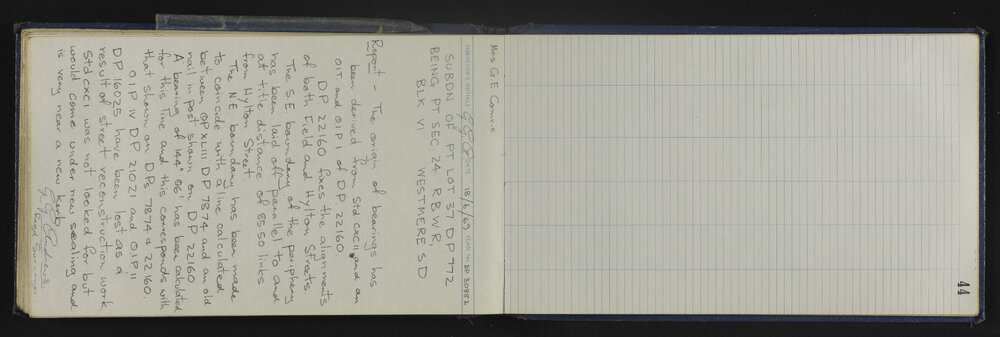 Mrs G.E. Comrie
SURVEYOR'S INITIALS DATE 18/6/69 PLAN No. DP 30882
SUBDN OF PT LOT 37 DP 772
BEING PT SEC 24 R.B.W.R,
BLK VI WESTMERE S D
Report - The origin of bearings has
been derived from Std CXCII and an
OIT and O.I.P I of DP 22160
DP 22160 fixes the alignments
of both Field and Hylton Streets
The SE boundary of the periphery
has been laid off parallel to and
at title distance of 8550 links
from Hylton Street.
The NE boundary has been made
to coincide with a line calculated
between OP XLIII DP 7874 and an old
nail in post shown on DP 22160
A bearing of 144° 06' has been calculated
for this line and this corresponds with
that shown on DPs 7874 & 22160.
O.I.P IV DP. 21021 and O.I.P II
DP 16025 have been lost as a
result of street reconstruction work.
Std CXCI was not looked for but
would come under new sealing and
is very near a new kerb
Regd Surveyor
44